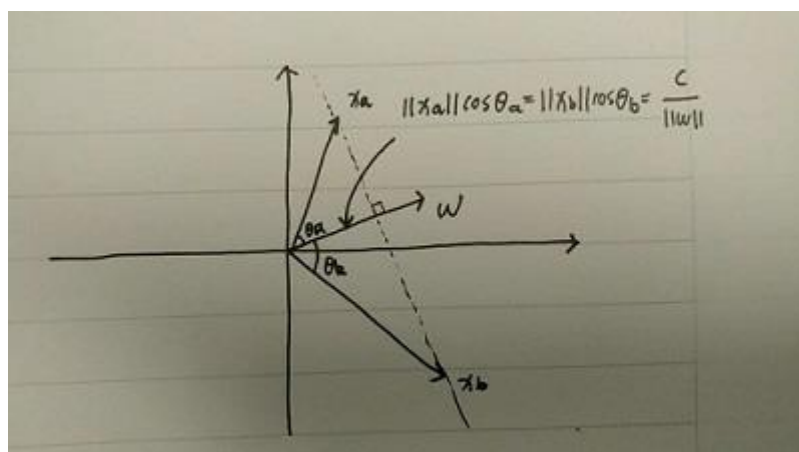 xa
||xa||cosθa=||xb||cosθb= c/||w||
w
θa
θb
xb